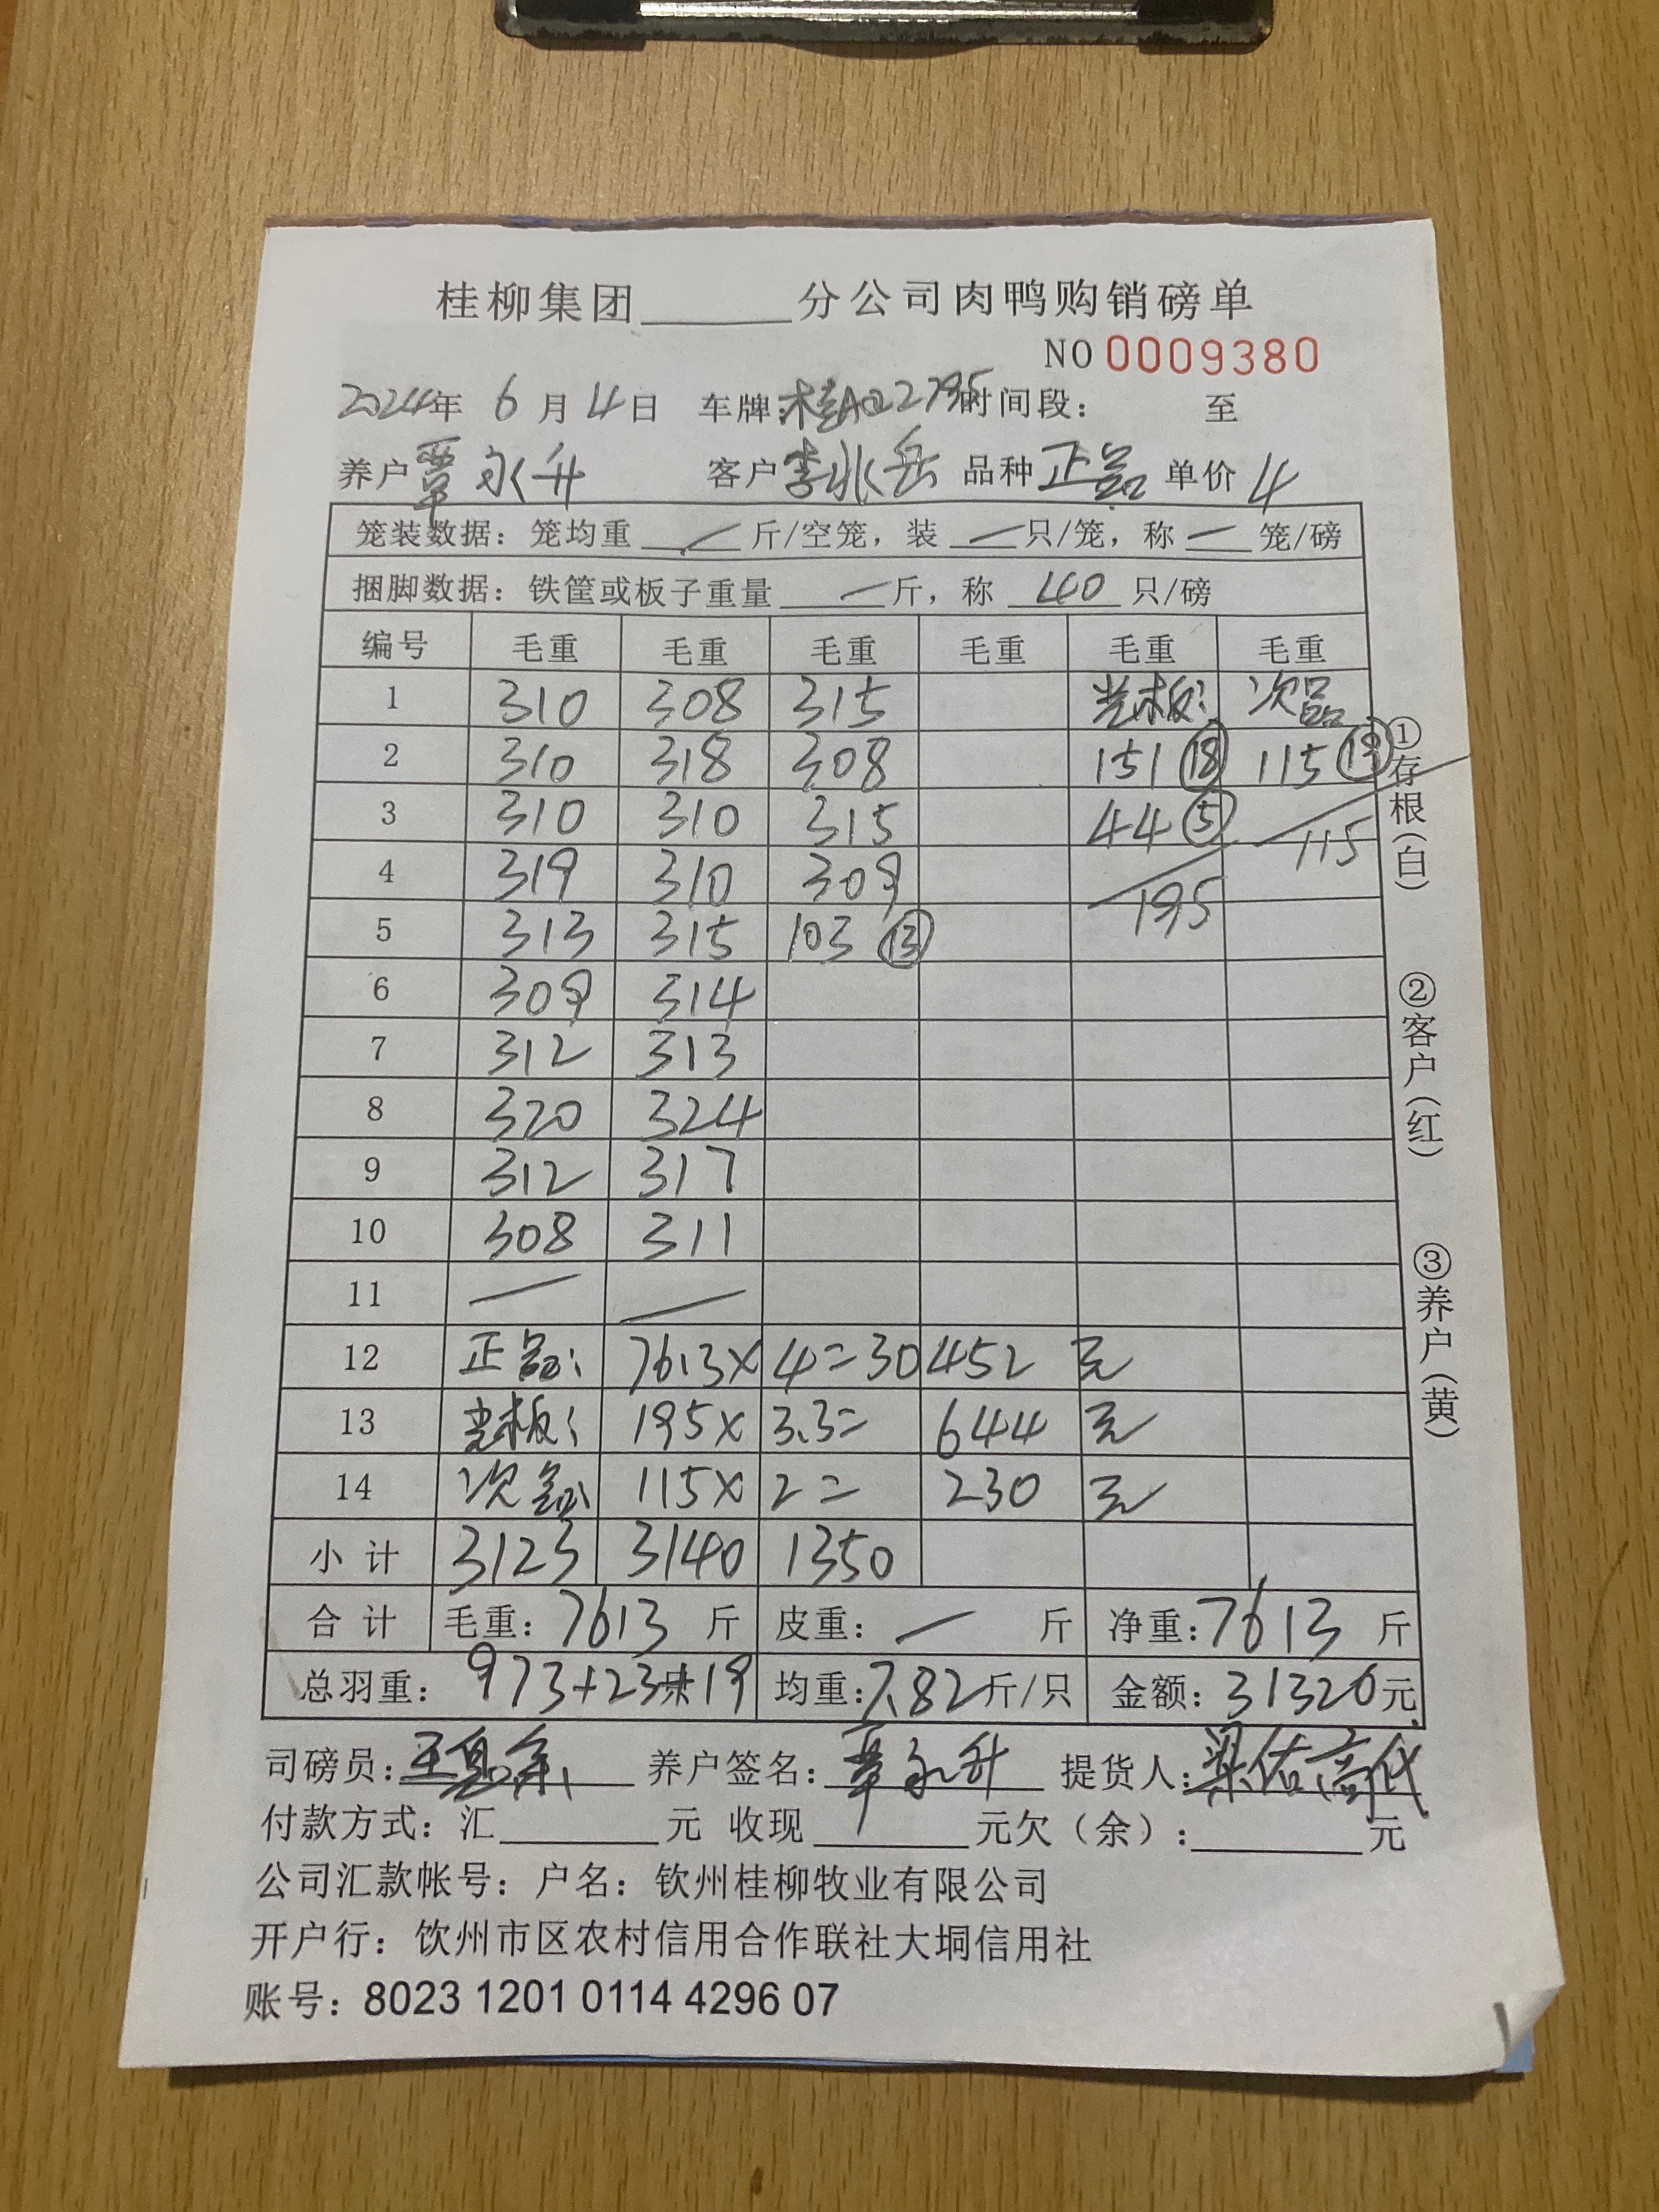 桂柳集团______分公司肉鸭购销磅单
NO 0009380
2024年 6月4日 车牌:桂A022795时间段: 至
养户覃永升 客户李兆岳 品种正品 单价4
笼装数据:笼均重 — 斤/空笼,装 — 只/笼,称 — 笼/磅
捆脚数据:铁筐或板子重量 — 斤,称 40 只/磅
编号 毛重 毛重 毛重 毛重 毛重 毛重
1 310 308 315 光板: 次品
2 310 318 308 151⑱ 115⑲
3 310 310 315 44⑤
4 319 310 309 195 115
5 313 315 103⑬
6 309 314
7 312 313
8 320 324
9 312 317
10 308 311
11 — —
12 正品: 7613×4=30452元
13 光板: 195×3.3= 644元
14 次品: 115×2= 230元
小计 3123 3140 1350
合计 毛重:7613斤 皮重:—斤 净重:7613斤
总羽重:973+23+19 均重:7.82斤/只 金额:31326元
司磅员: 养户签名:覃永升 提货人:
付款方式:汇______元 收现______元欠(余):______元
公司汇款帐号:户名:钦州桂柳牧业有限公司
开户行:饮州市区农村信用合作联社大垌信用社
账号:8023 1201 0114 4296 07
①存根(白)
②客户(红)
③养户(黄)